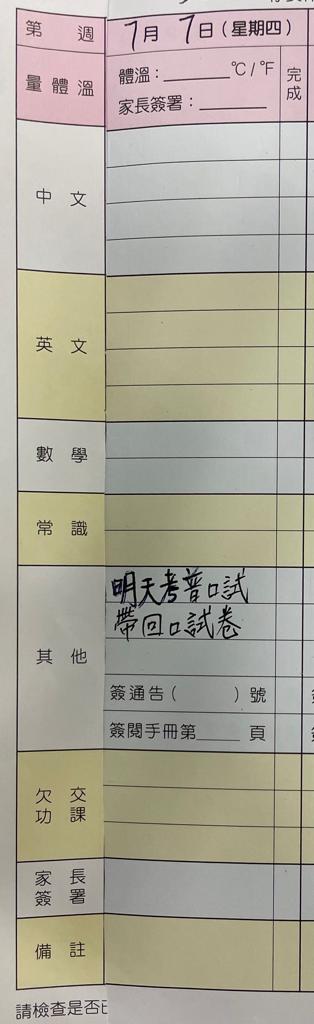 第 週
7月 7日(星期四)
量體溫
體溫:______°C/°F
家長簽署:______
完成
中 文
英 文
數 學
常 識
其 他
明天考普口試
帶回口試卷
簽通告( )號
簽閱手冊第____頁
欠 交
功 課
家 長
簽 署
備 註
請檢查是否已